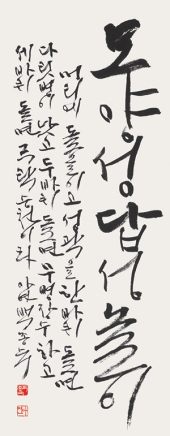 모양성 답성놀이
머리에 돌을 이고 성곽을 한바퀴 돌면
다릿병이 낫고 두바퀴 돌면 무병장수하고
세바퀴 돌면 극락승천이라